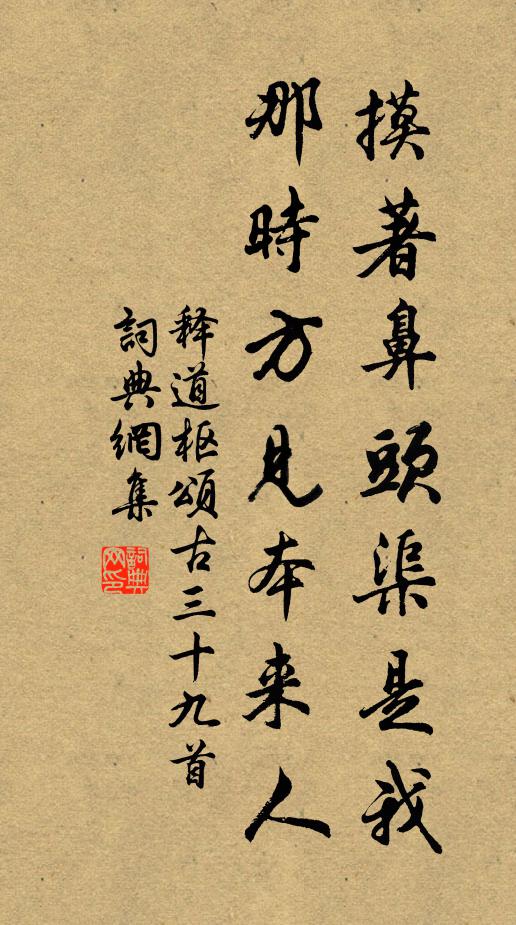 摸著鼻頭渠是我
那時方見本来人
释道枢頌古三十九首
詞典網集
詞典网印